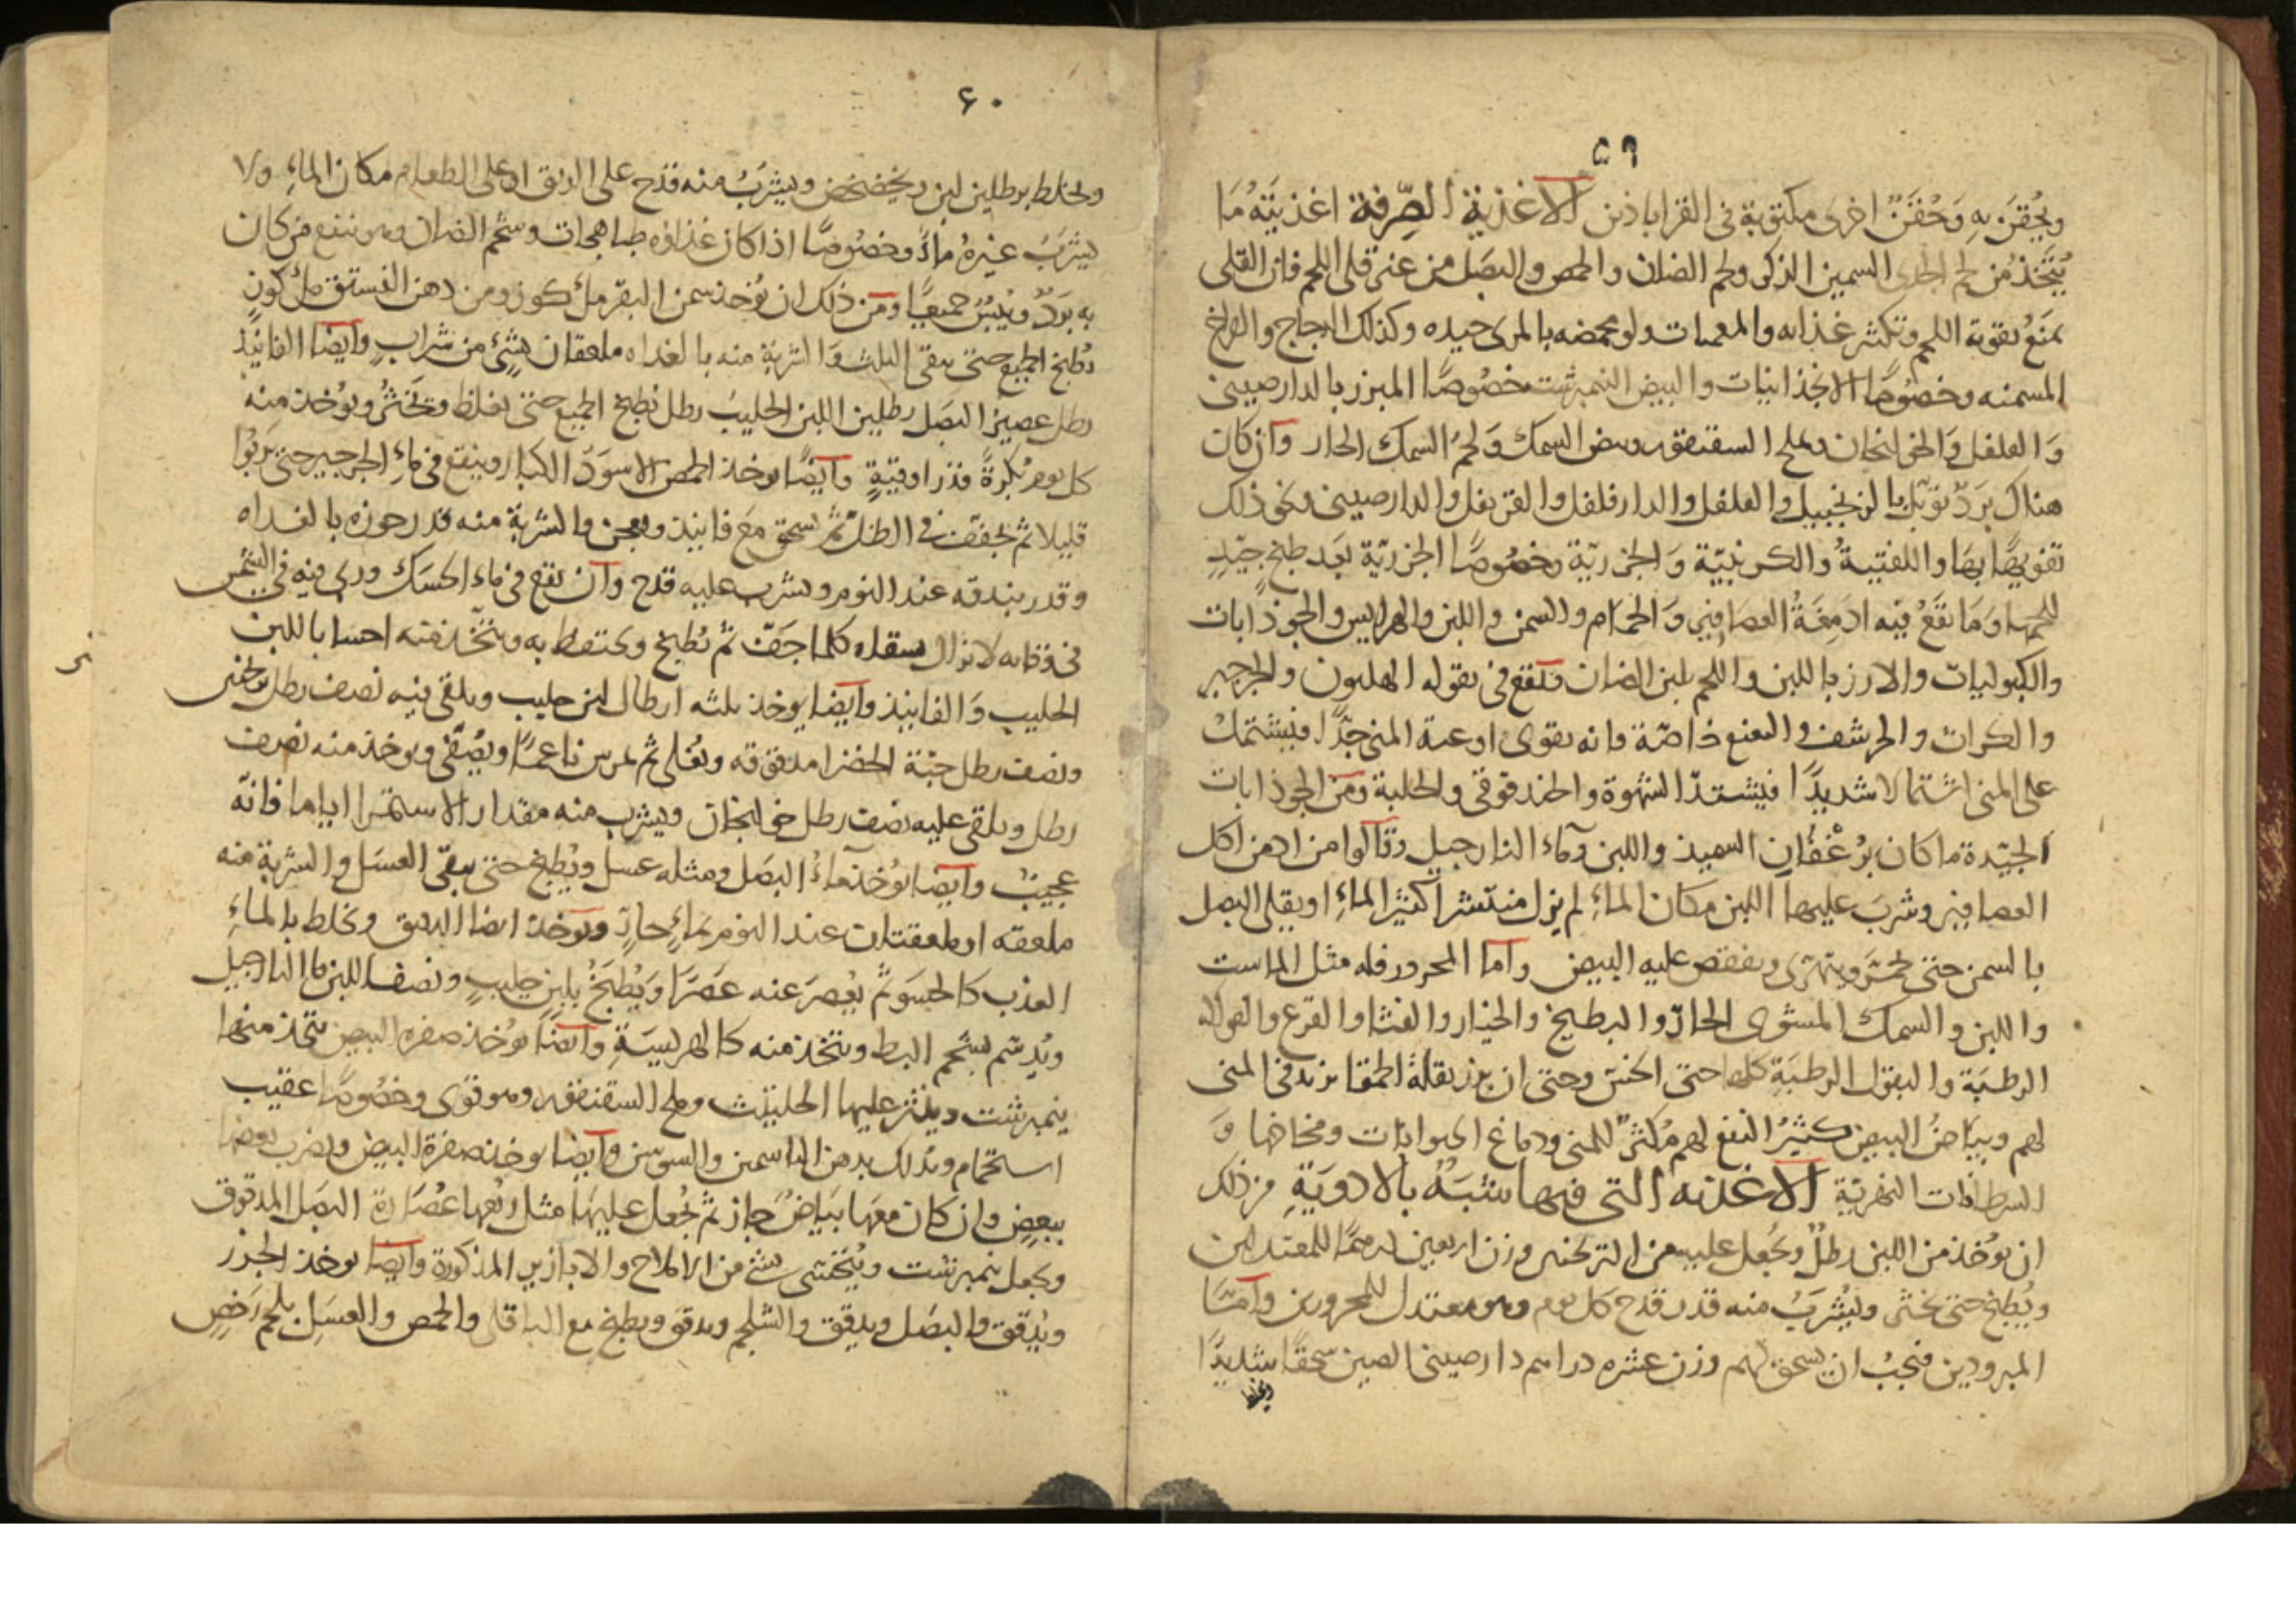 ٥٩
ويُحقَن به وَحُقَنٌ اخرى مكتوبة فى القراباذين الاغذية الصِّرفة اغذيَتَهُ مَا
يُتَّخذ من لحم السمين الذكر ولحم الضان والحمص والبصَل من غير قلى اللحم فان القلى
يمنَعُ تقوية اللحم وتكثير غذايه والمعمات ولو محمضه بالمرى جيده وكذلك الدجاج والفراخ
المسمنه وخصُوصًا الانجذانيات والبيض النيمبرشت خصُوصًا المبزر بالدارصينى
وَالفلفل وَالخولنجان وملح السقنقور وبيض السمك وَلحمُ السمك الحار وان كان
هناك بَردٌ توبّل بالزنجبيل والفلفل والدارفلفل والقرنفل والدارصينى ونحو ذلك
تفويهًا بهَا واللفتيةُ والكرنبيّة وَالجزريّة وخصُوصًا الجزريّة بَعد طبخٍ جيّدٍ
للحمها وَمَا تقعُ فيه ادمِغةُ العصافير وَالحمام والسمن واللبن والهرايس والجوذابات
والكبوليات والارز باللبن واللحم بلبن الضان وتنفع فى بقوله الهليون والجرجير
والكراث والحرشف والنعنع خاصّة فانه يقوى اوعية المنى جدًّا فيشتمل
على المنى اشتمالا شديدًا فيشتدّ الشهوة والحندقوقى والحلبة ومن الجوذابات
الجيّدة ما كان برُغفَانِ السميذ واللبن وماء النارجيل وقالوا من ادمن اكل
العصافير وشرَبَ عليها اللبن مكان الماءِ لم يزل منتشرا كثيرَ الماءِ او يقلى البصل
بالسمن حتى يحمرّ ويتهرّى ويفقص عليه البيض واما المحرور فله مثل الماست
واللبن والسمك المشوى الحارّ والبطيخ والخيار والقثا والقرع والفواكه
الرطبَة والبقول الرطبَةِ كلها حتى الخسّ وحتى ان بزر بقلة الحمقا يزيد فى المنى
لهم وبيَاضُ البيض كثيرُ النفع لهم مُكثرٌ للمنى ودماغ الحيوانات ومخاخها وَ
السرطانات النهريّة الاغذيه التى فيها شبَهٌ بالادويَةِ من ذلك
ان يوُخذ من اللبن رطلٌ ويُجعل عليه من الترنجبين وزن اربعين درهمًا للمعتدلين
ويُطبخ حتى يخثر ويُشرَبُ منه قدر قدح كل يوم وهو معتدل للمحرورين وامَّا
المبرودين فيجبُ ان يسحق لهم وزن عشره دراهم دارصينى الصين سحقًا شديدًا
ويخلط
٤٠
ويخلط برطلين لبن ويخضخض ويشرَبُ منه قدح على الريق او على الطعام مكان الماءِ ولا
يشرَبُ غيرُه ماءً وخصُوصًا اذا كان غذاؤه طباهجات وشحم الضان وهو ينفع من كان
به بَردٌ ويُبسٌ جميعًا ومن ذلك ان يُؤخذ سمن البقر ملءُ كوز ومن دهن الفستق ملءُ كوزٍ
يُطبخ الجميع حتى يبقى الثلث وَالشربة منه بالغداه ملعقتان بشئٍ من شرابٍ وايضًا الفانيذ
رطل عصير البصَل رطلين اللبن الحليبُ رطل يُطبخ الجميع حتى يغلظ ويخثر ويوُخذ منه
كل يوم بُكرةً قدر اوقيّةٍ وايضًا يوخذ الحمص الاسوَدُ الكبار وينقع فى ماءِ الجرجير حتى يَربُوا
قليلا ثم يجفّف فى الظلّ ثمّ يُسحق مَع فانيذ ويعجن والشربة منه قدر جوزه بالغداه
وقدر بندقه عند النوم ويشرب عليه قدح وان نقع فى ماء الحسَك وربى فيه فى الشمس
لا تزال سقاه كلما جَفّ ثم يُطبخ ويحتفظ به ويتّخذ منه احسا باللبن
الحليب وَالفانيذ وايضا يوخذ ثلثه ارطال لبن حليب ويلقى فيه نصف رطل
ونصف رطل حبّة الخضرا مدقوقه ويُغلى ثم يمرس ناعمًا ويُصفّى ويوخذ منه نصف
رطل ويلقى عليه نصف رطل خولنجان ويشرب منه مقدار الاستمرا اياما فانّه
عجيبٌ وايضا يُؤخذ ماءُ البصَل ومثله عسل ويُطبخ حتى يبقى العسَل والشربة منه
ملعقه او ملعقتان عند النوم بماءٍ حارٍّ ويوخذ ايضا الدقيق ويخلط بالماءِ
العذب كالحَسَو ثمّ يُعصرَ عنه عَصرًا وَيُطبَخُ بلبنٍ حليبٍ ونصف اللبن ماء النارجيل
ويُدسّم بشحم البط ويتخذ منه كالهريسَةِ وايضًا يوُخذ صفره البيض يتخذ منها
ينمبرشت وينثر عليها الحلتيث وملح السقنقور وهو قوى وخصُوصًا عقيب
استحمام وتدلك بدهن الياسمين والسوسن وايضا يوخذ صفرة البيض ويضرب بعضها
ببعضٍ وان كان معَها بيَاضٌ جاز ثم يُجعل عليهَا مثل رُبُعها عُصَارة البصَل المدقوق
ويجعل نيمبرشت ويُتحسّى بشئ من الاملاح والابازير المذكورة وايضًا يوخذ الجزر
ويُدقق والبصَل ويدقق والشلجم ويدقق ويطبخ مع الباقلى والحمص والعسَل بلحم رَخصٍ